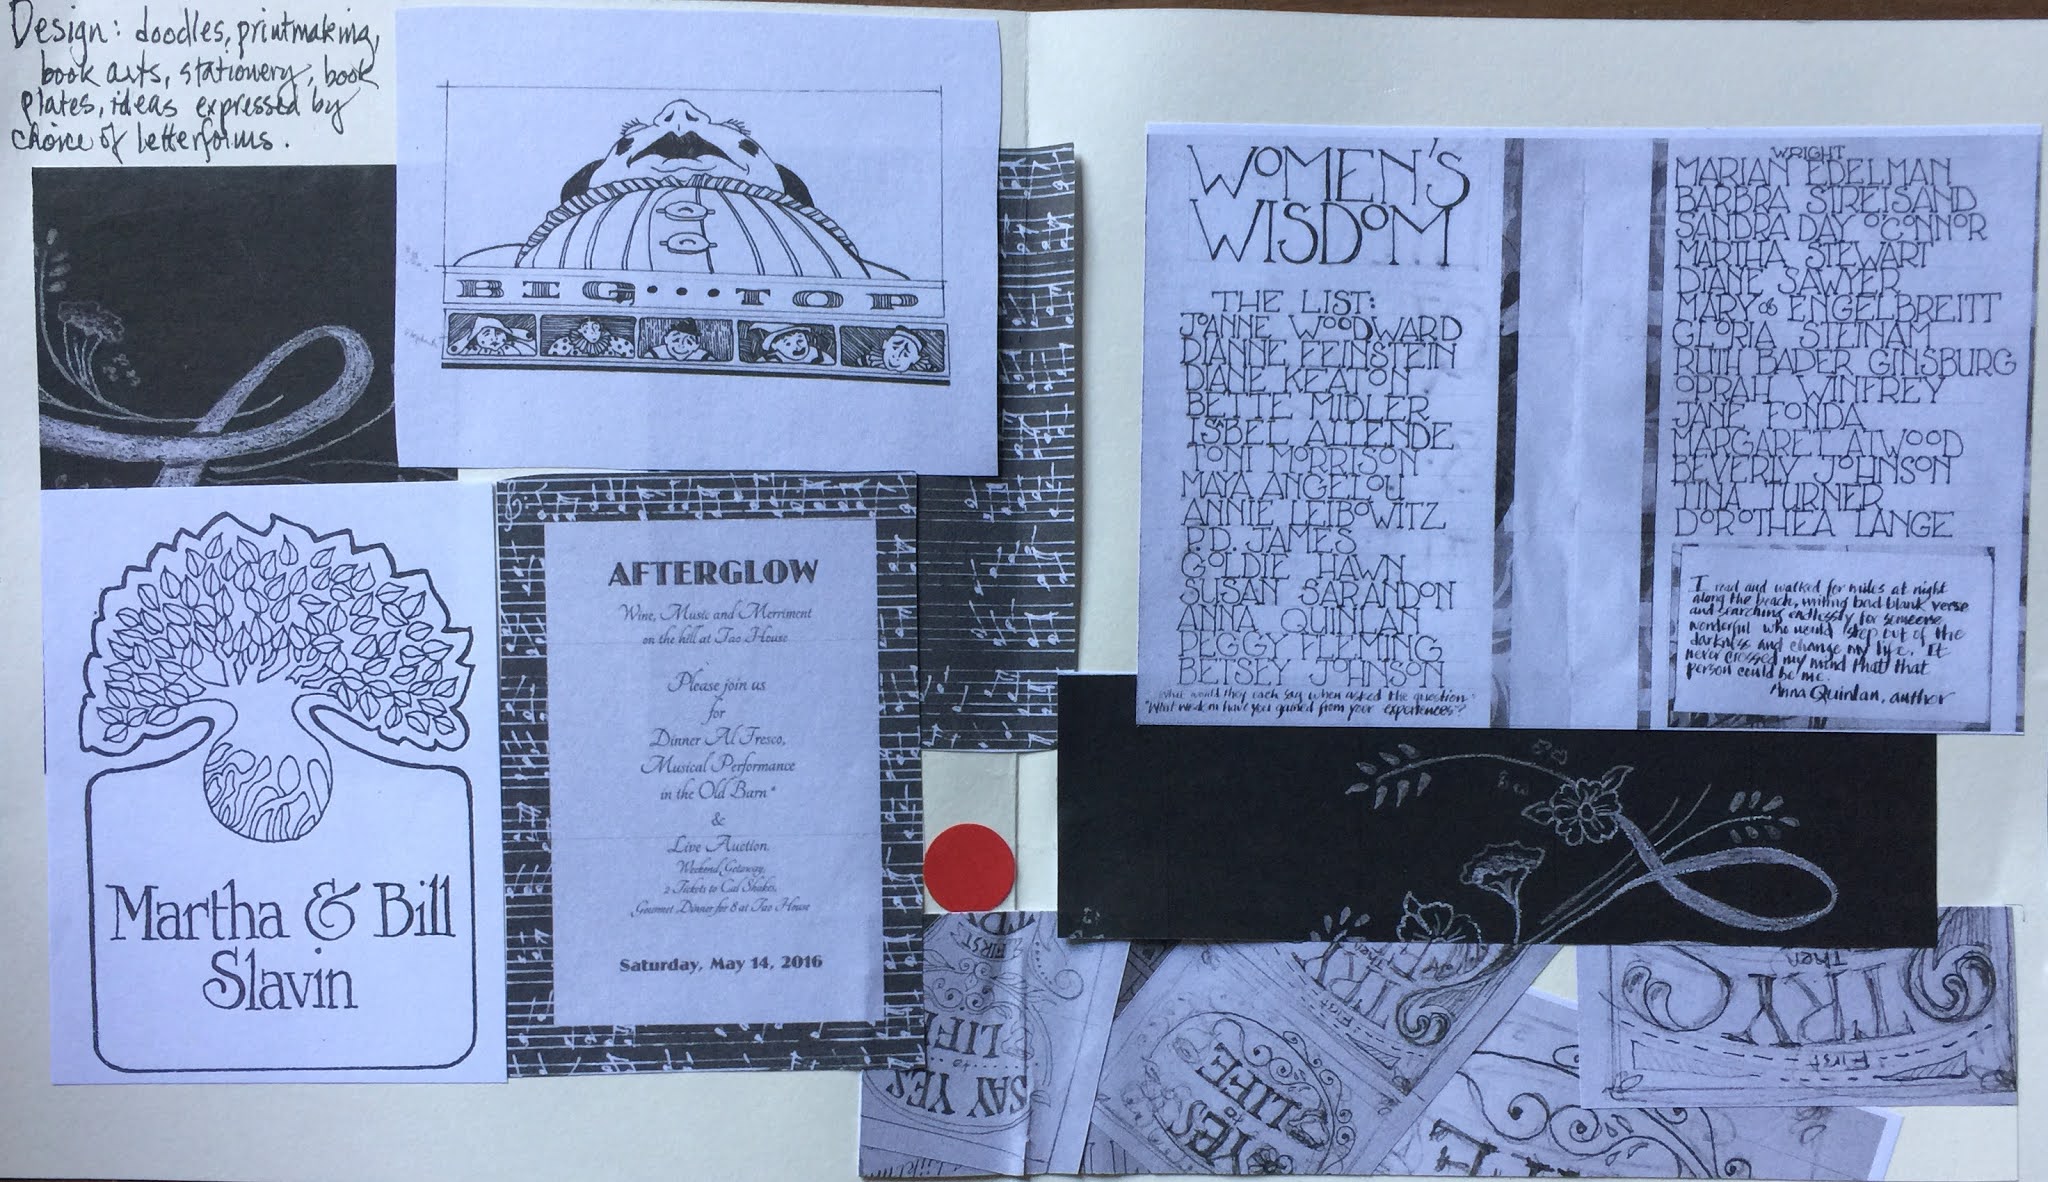 Design: doodles, printmaking,
book arts, stationery, book
plates, ideas expressed by
choice of letterforms.
BIG...TOP
Martha & Bill
Slavin
AFTERGLOW
Wine, Music and Merriment
on the hill at Tao House
Please join us
for
Dinner Al Fresco,
Musical Performance
in the Old Barn*
&
Live Auction
Weekend Getaway,
2 Tickets to Cal Shakes,
Gourmet Dinner for 8 at Tao House
Saturday, May 14, 2016
WOMEN'S
WISDOM
THE LIST:
JOANNE WOODWARD
DIANNE FEINSTEIN
DIANE KEATON
BETTE MIDLER
ISBEL ALLENDE
TONI MORRISON
MAYA ANGELOU
ANNIE LEIBOWITZ
P.D. JAMES
GOLDIE HAWN
SUSAN SARANDON
ANNA QUINLAN
PEGGY FLEMING
BETSEY JOHNSON
"What would they each say when asked the question:
"What wisdom have you gained from your experiences?"
WRIGHT
MARIAN EDELMAN
BARBRA STREISAND
SANDRA DAY O'CONNOR
MARTHA STEWART
DIANE SAWYER
MARY ENGELBREITT
GLORIA STEINAM
RUTH BADER GINSBURG
OPRAH WINFREY
JANE FONDA
MARGARET ATWOOD
BEVERLY JOHNSON
TINA TURNER
DOROTHEA LANGE
I read and walked for miles at night
along the beach, writing bad blank verse
and searching endlessly for someone
wonderful who would step out of the
darkness and change my life. It
never crossed my mind that that
person could be me.
Anna Quinlan, author
FIRST
LIFE
to
SAY YES
First
Then
TRY
YES
to
LIFE
Then
TRY
First